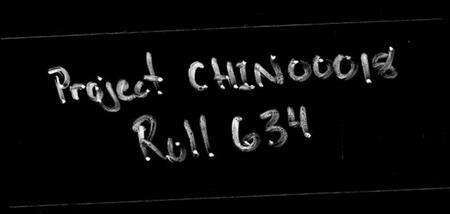 Project CHINOOO18
Roll 634